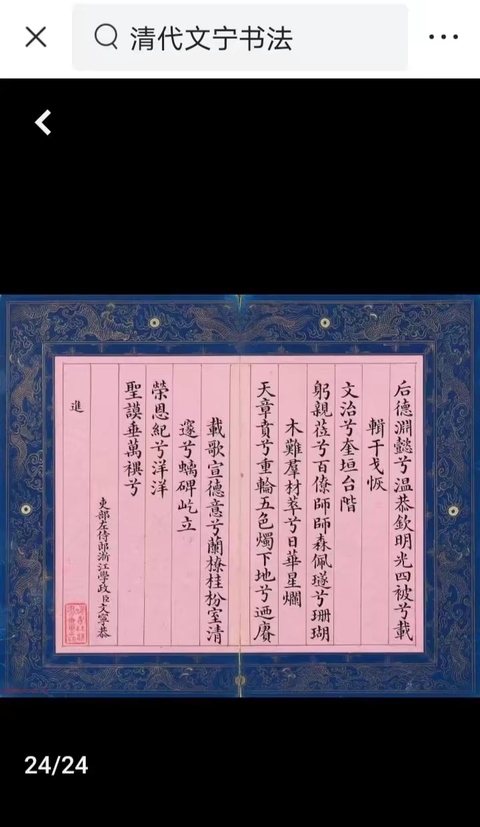 清代文宁书法
后德淵懿兮温恭欽明光四被兮載
輯干戈恢
文治兮奎垣台階
躬親莅兮百僚師師森佩璲兮珊瑚
木難羣材萃兮日華星爛
天章賁兮重輪五色燭下地兮迺賡
載歌宣德意兮蘭橑桂枌室清
邃兮螭碑屹立
榮恩紀兮洋洋
聖謨垂萬禩兮
吏部左侍郎浙江學政臣文寧恭
進
24/24